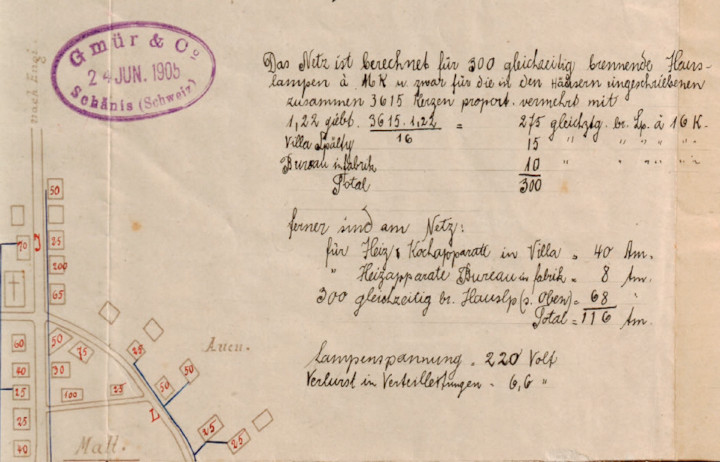 Gmür & Co
24 JUN. 1905
Schänis (Schweiz)
nach Engi
Das Netz ist berechnet für 300 gleichzeitig brennende Haus-
lampen à 16 K u. zwar für die in den Häusern ingeschriebenen
zusammen 3615 Kerzen proport. vermehrt mit
1,22 giebt. 3615.1,22 = 275 gleichztg. br. Lp. à 16 K.
16
Villa Spälty 15 " " " " "
Bureau in fabrik 10 " " " " "
Total 300
ferner sind am Netz:
für Heiz & Kochapparate in Villa = 40 Am.
" Heizapparate Bureau in fabrik = 8 Am.
300 gleichzeitig br. Hauslp (s. Oben) = 68 "
Total = 116 Am.
Lampenspannung = 220 Volt
Verlurst in Verteilleitungen = 6,6 "
50
70
J
25
200
65
60
50
75
40
30
25
100
25
25
40
25
50
50
L
25
25
Auen.
Matt.